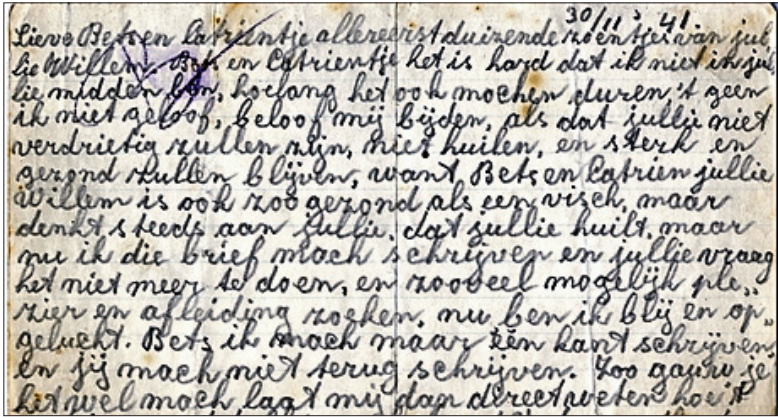 30/11 '41
Lieve Bets en Catrientje allereerst duizende zoentjes van jul
lie Willem. Bets en Catrientje het is hard dat ik niet in jul
lie midden ben, hoelang het ook mochen duren, 't geen
ik niet geloof, beloof mij bijden, als dat jullie niet
verdrietig zullen zijn, niet huilen, en sterk en
gezond zullen blijven, want, Bets en Catrien jullie
Willem is ook zoo gezond als een visch, maar
denkt steeds aan jullie, dat jullie huilt, maar
nu ik die brief mach schrijven en jullie vraag
het niet meer te doen, en zooveel mogelijk ple„
zier en afleiding zoeken, nu ben ik blij en op„
gelucht. Bets ik mach maar één kant schrijven,
en jij mach niet terug schrijven. Zoo gauw je
het wel mach, laat mij dan direct weten hoe 't